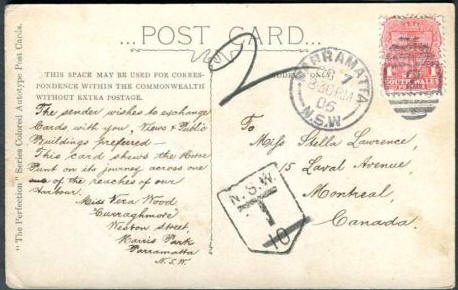 ...POST CARD...
THIS SPACE MAY BE USED FOR CORRES-
PONDENCE WITHIN THE COMMONWEALTH
WITHOUT EXTRA POSTAGE.
"The Perfection" Series Colored Autotype Post Cards.
The sender wishes to exchange
Cards with you, Views & Public
Buildings preferred —
This Card shews the Horse
Punt on its journey across one
of the reaches of our
Harbour.
Miss Vera Wood
Curraghmore
Weston Street,
Harris Park
Parramatta
N.S.W.
2
PARRAMATTA
7
8 30 PM
06
N.S.W
SOUTH WALES
1
To
Miss Stella Lawrence,
15 Laval Avenue,
Montreal,
Canada.
N.S.W.
T
10